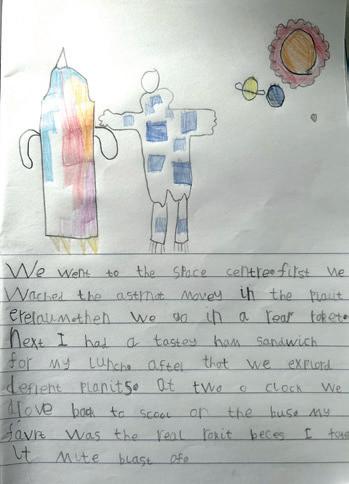 We went to the space centre first we
wached the astrnot movey in the planit
then we go in a real
Next I had a tastey ham sandwich
for my lunch after that we explord
defrent planits at two o clock we
drove back to scool on the buse my
favrt was the real rokit beces I
it mite blast ofe